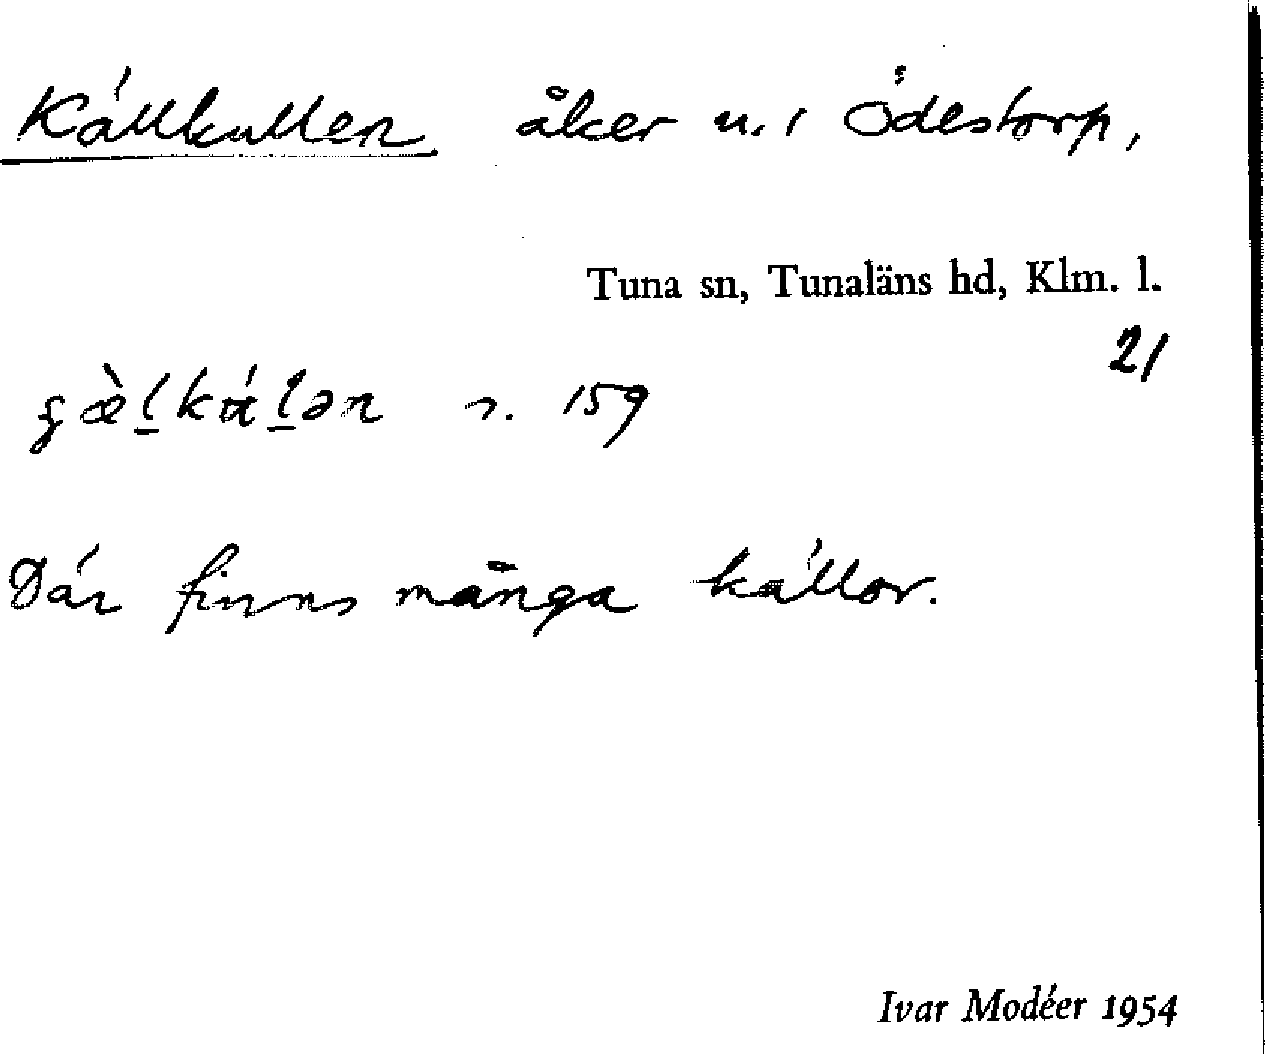 Källkullen åker n. i Ödestorp,
Tuna sn, Tunaläns hd, Klm. l.
21
s. 159
Där finns många källor.
Ivar Modéer 1954